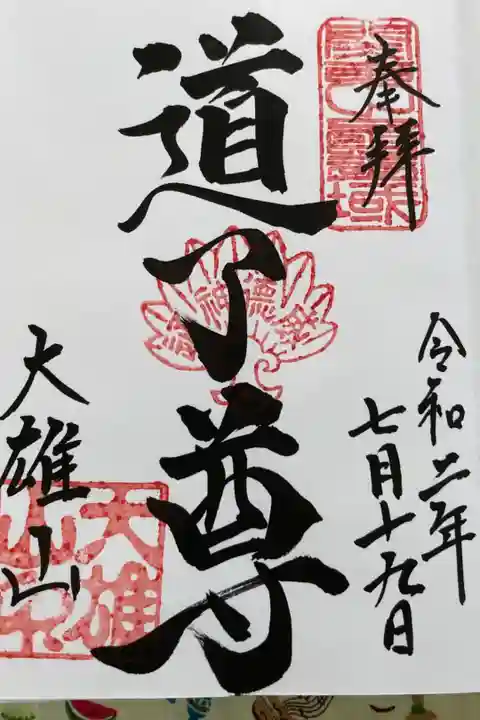 奉拝
令和二年
七月十九日
道了尊
大雄山